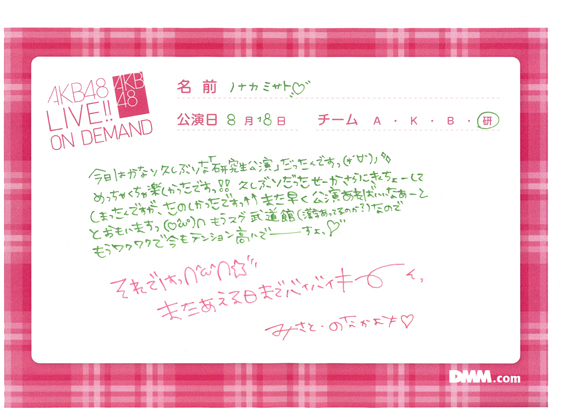 AKB48
LIVE!!
ON DEMAND
AKB
48
名前 ノナカミサト♡
公演日 8月18日 チーム A・K・B・研
今日はかなり久しぶりな「研究生公演」だったんですっ
めっちゃくちゃ楽しかったですっ!! 久しぶりだったせーか さらにきんちょーして
しまったんですが、たのしかったですっ!! また早く公演あればいいなぁーと
とおもいますっ もうスグ武道館(漢字あってるのか?)なので
もうワクワクで今もテンション高いでーーすょ、♡
それではっ ☆
またあえる日までバイバイキーーンっ
みさと・のなかより♡
DMM.com